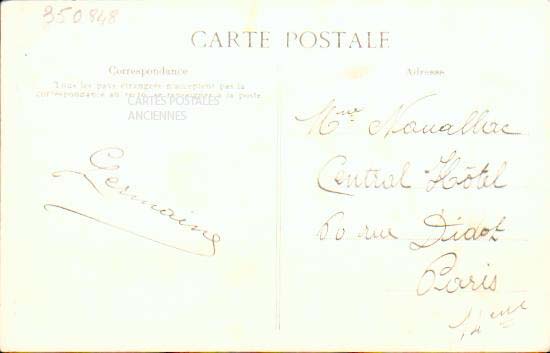 350848
CARTE POSTALE
Correspondance
Tous les pays étrangers n'acceptent pas la
correspondance au verso, se renseigner à la poste
CARTES POSTALES
ANCIENNES
Germaine
Adresse
Mme Nouallac
Central Hôtel
60 rue Didot
Paris
14eme